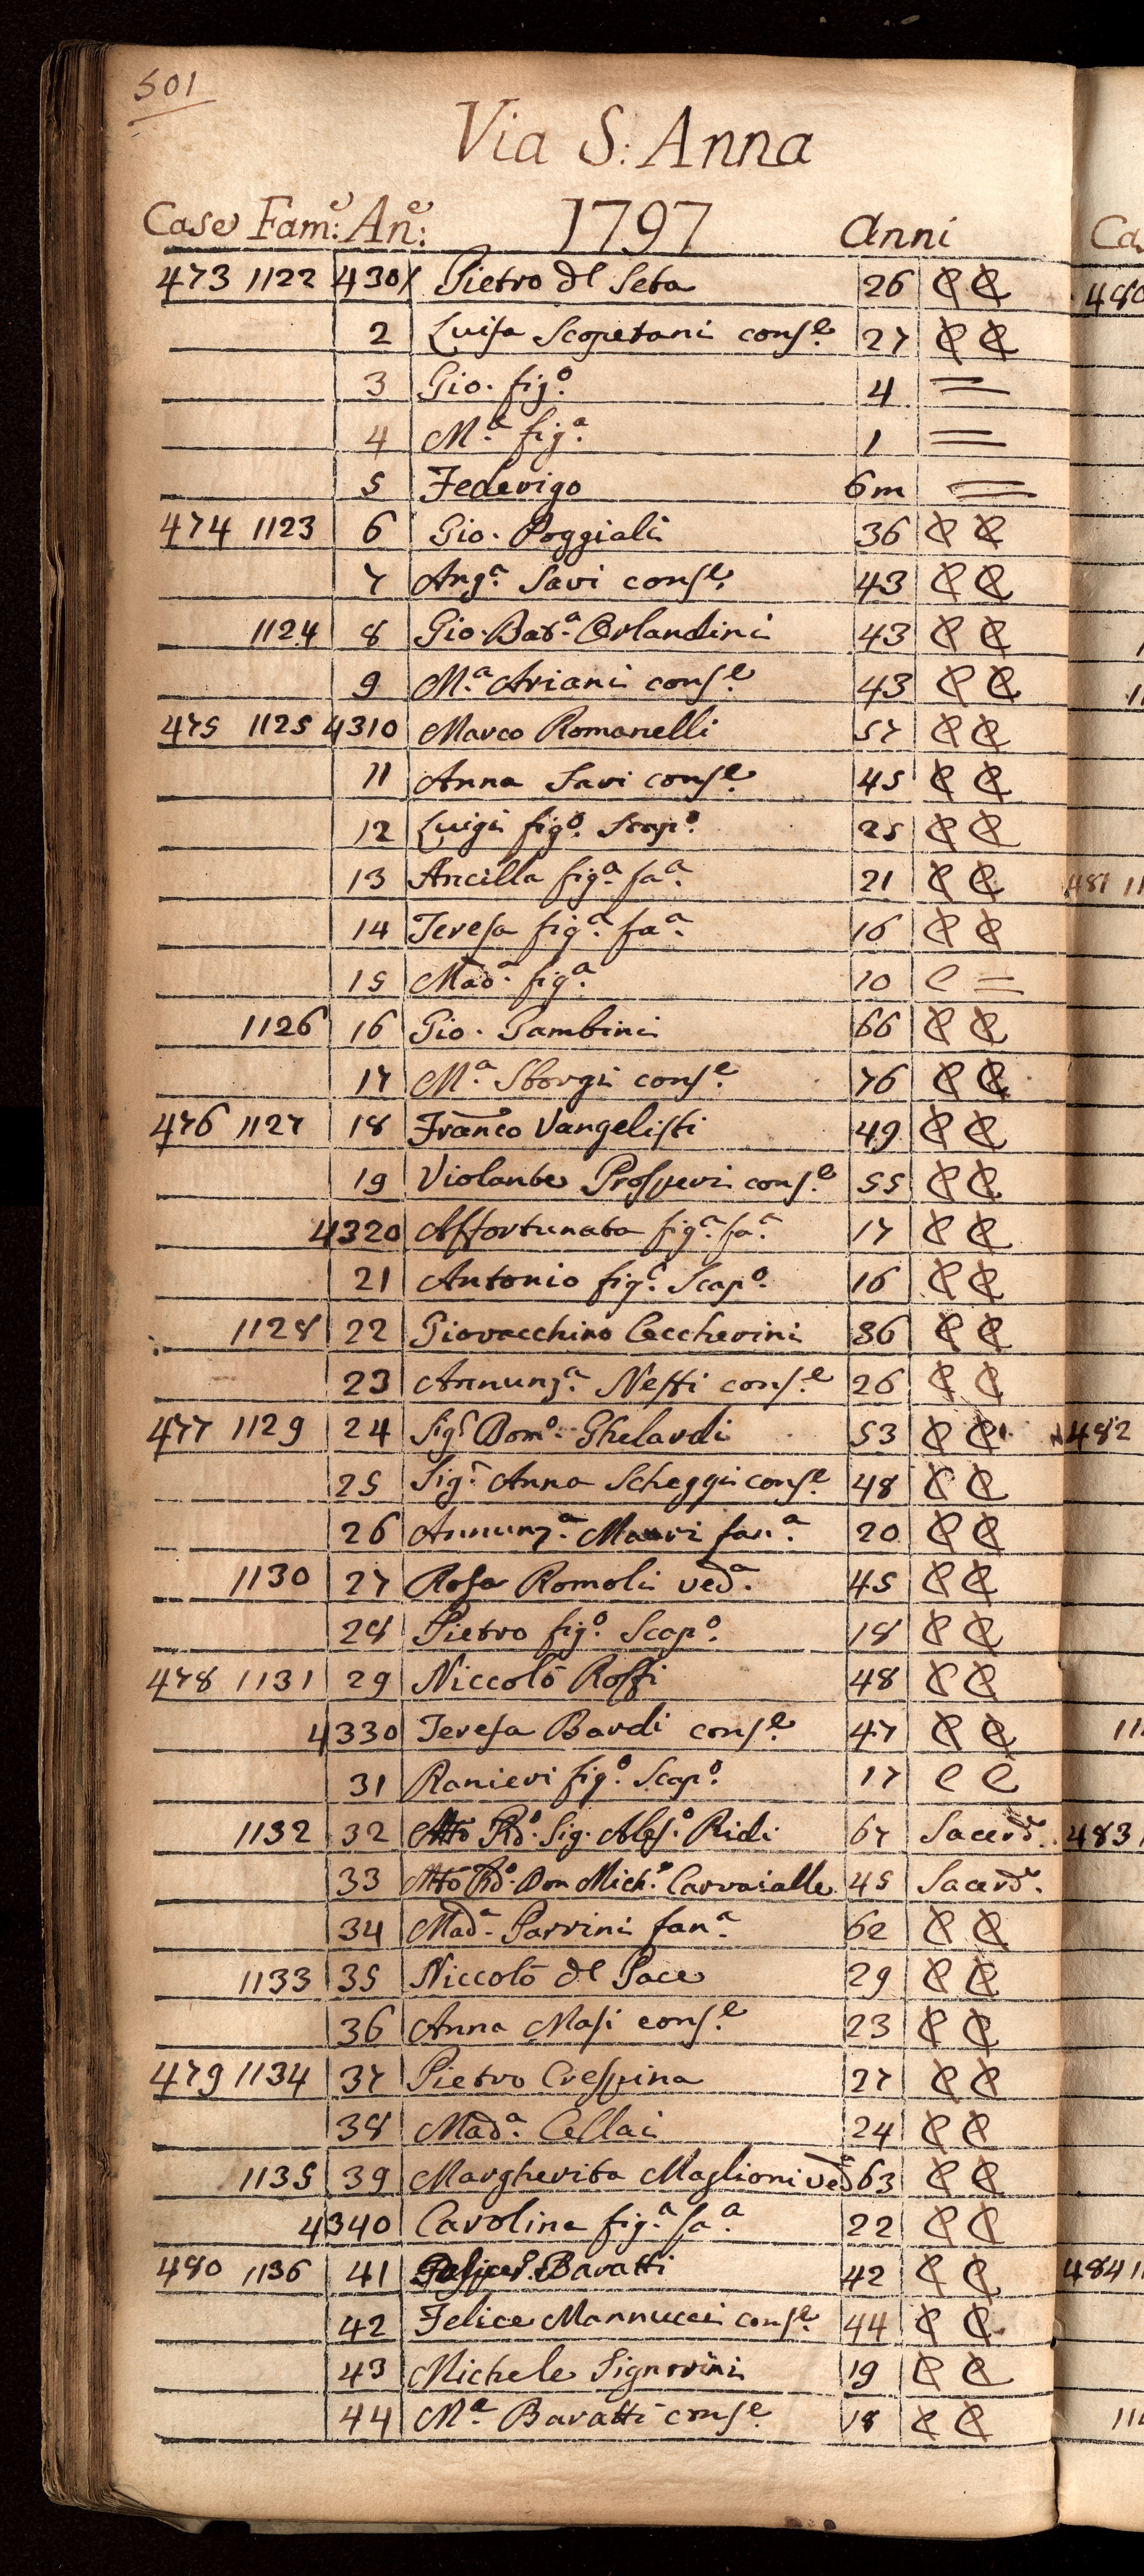 501
Via S: Anna
Case Fam:e An:e 1797 Anni
473 1122 4301 Pietro del Seta 26 C C
2 Luisa Scopetani cons.e 27 C C
3 Gio. fig.o 4 =
4 M.a fig.a 1 =
5 Federigo 6m =
474 1123 6 Gio. Poggiali 36 C C
7 Ang.a Savi cons.e 43 C C
1124 8 Gio. Bat.a Orlandini 43 C C
9 M.a Ariani cons.e 43 C C
475 1125 4310 Marco Romanelli 57 C C
11 Anna Savi cons.e 45 C C
12 Luigi fig.o Scap.o 25 C C
13 Ancilla fig.a fa.a 21 C C
14 Teresa fig.a fa.a 16 C C
15 Mad.a fig.a 10 C =
1126 16 Gio. Gambini 66 C C
17 M.a Sborgi cons.e 76 C C
476 1127 18 Franco Vangelisti 49 C C
19 Violante Prosperi cons.e 55 C C
4320 Affortunata fig.a fa.a 17 C C
21 Antonio fig.o Scap.o 16 C C
1128 22 Giovacchino Ceccherini 36 C C
23 Annunz.a Nesti cons.e 26 C C
477 1129 24 Sig.r Dom.o Ghelardi 53 C C
25 Sig.a Anna Scheggi cons.e 48 C C
26 Annunz.a Mauri fan.a 20 C C
1130 27 Rosa Romoli ved.a 45 C C
28 Pietro fig.o Scap.o 18 C C
478 1131 29 Niccolò Rossi 48 C C
4330 Teresa Bardi cons.e 47 C C
31 Ranieri fig.o Scap.o 17 C C
1132 32 Mto Rdo. Sig. Aless.o Ridi 67 Sacerd.e
33 Mto Rdo. Don Mich.e Carvaialle 45 Sacerd.e
34 Mad.a Parrini fan.a 62 C C
1133 35 Niccolò del Pace 29 C C
36 Anna Masi cons.e 23 C C
479 1134 37 Pietro Crespina 27 C C
38 Mad.a Cellai 24 C C
1135 39 Margherita Maglioni ved.a 63 C C
4340 Carolina fig.a fa.a 22 C C
480 1136 41 Baratti 42 C C
42 Felice Mannucci cons.e 44 C C
43 Michele Signorini 19 C C
44 M.a Baratti cons.e 18 C C
Ca
480
481 11
482
483
484 11